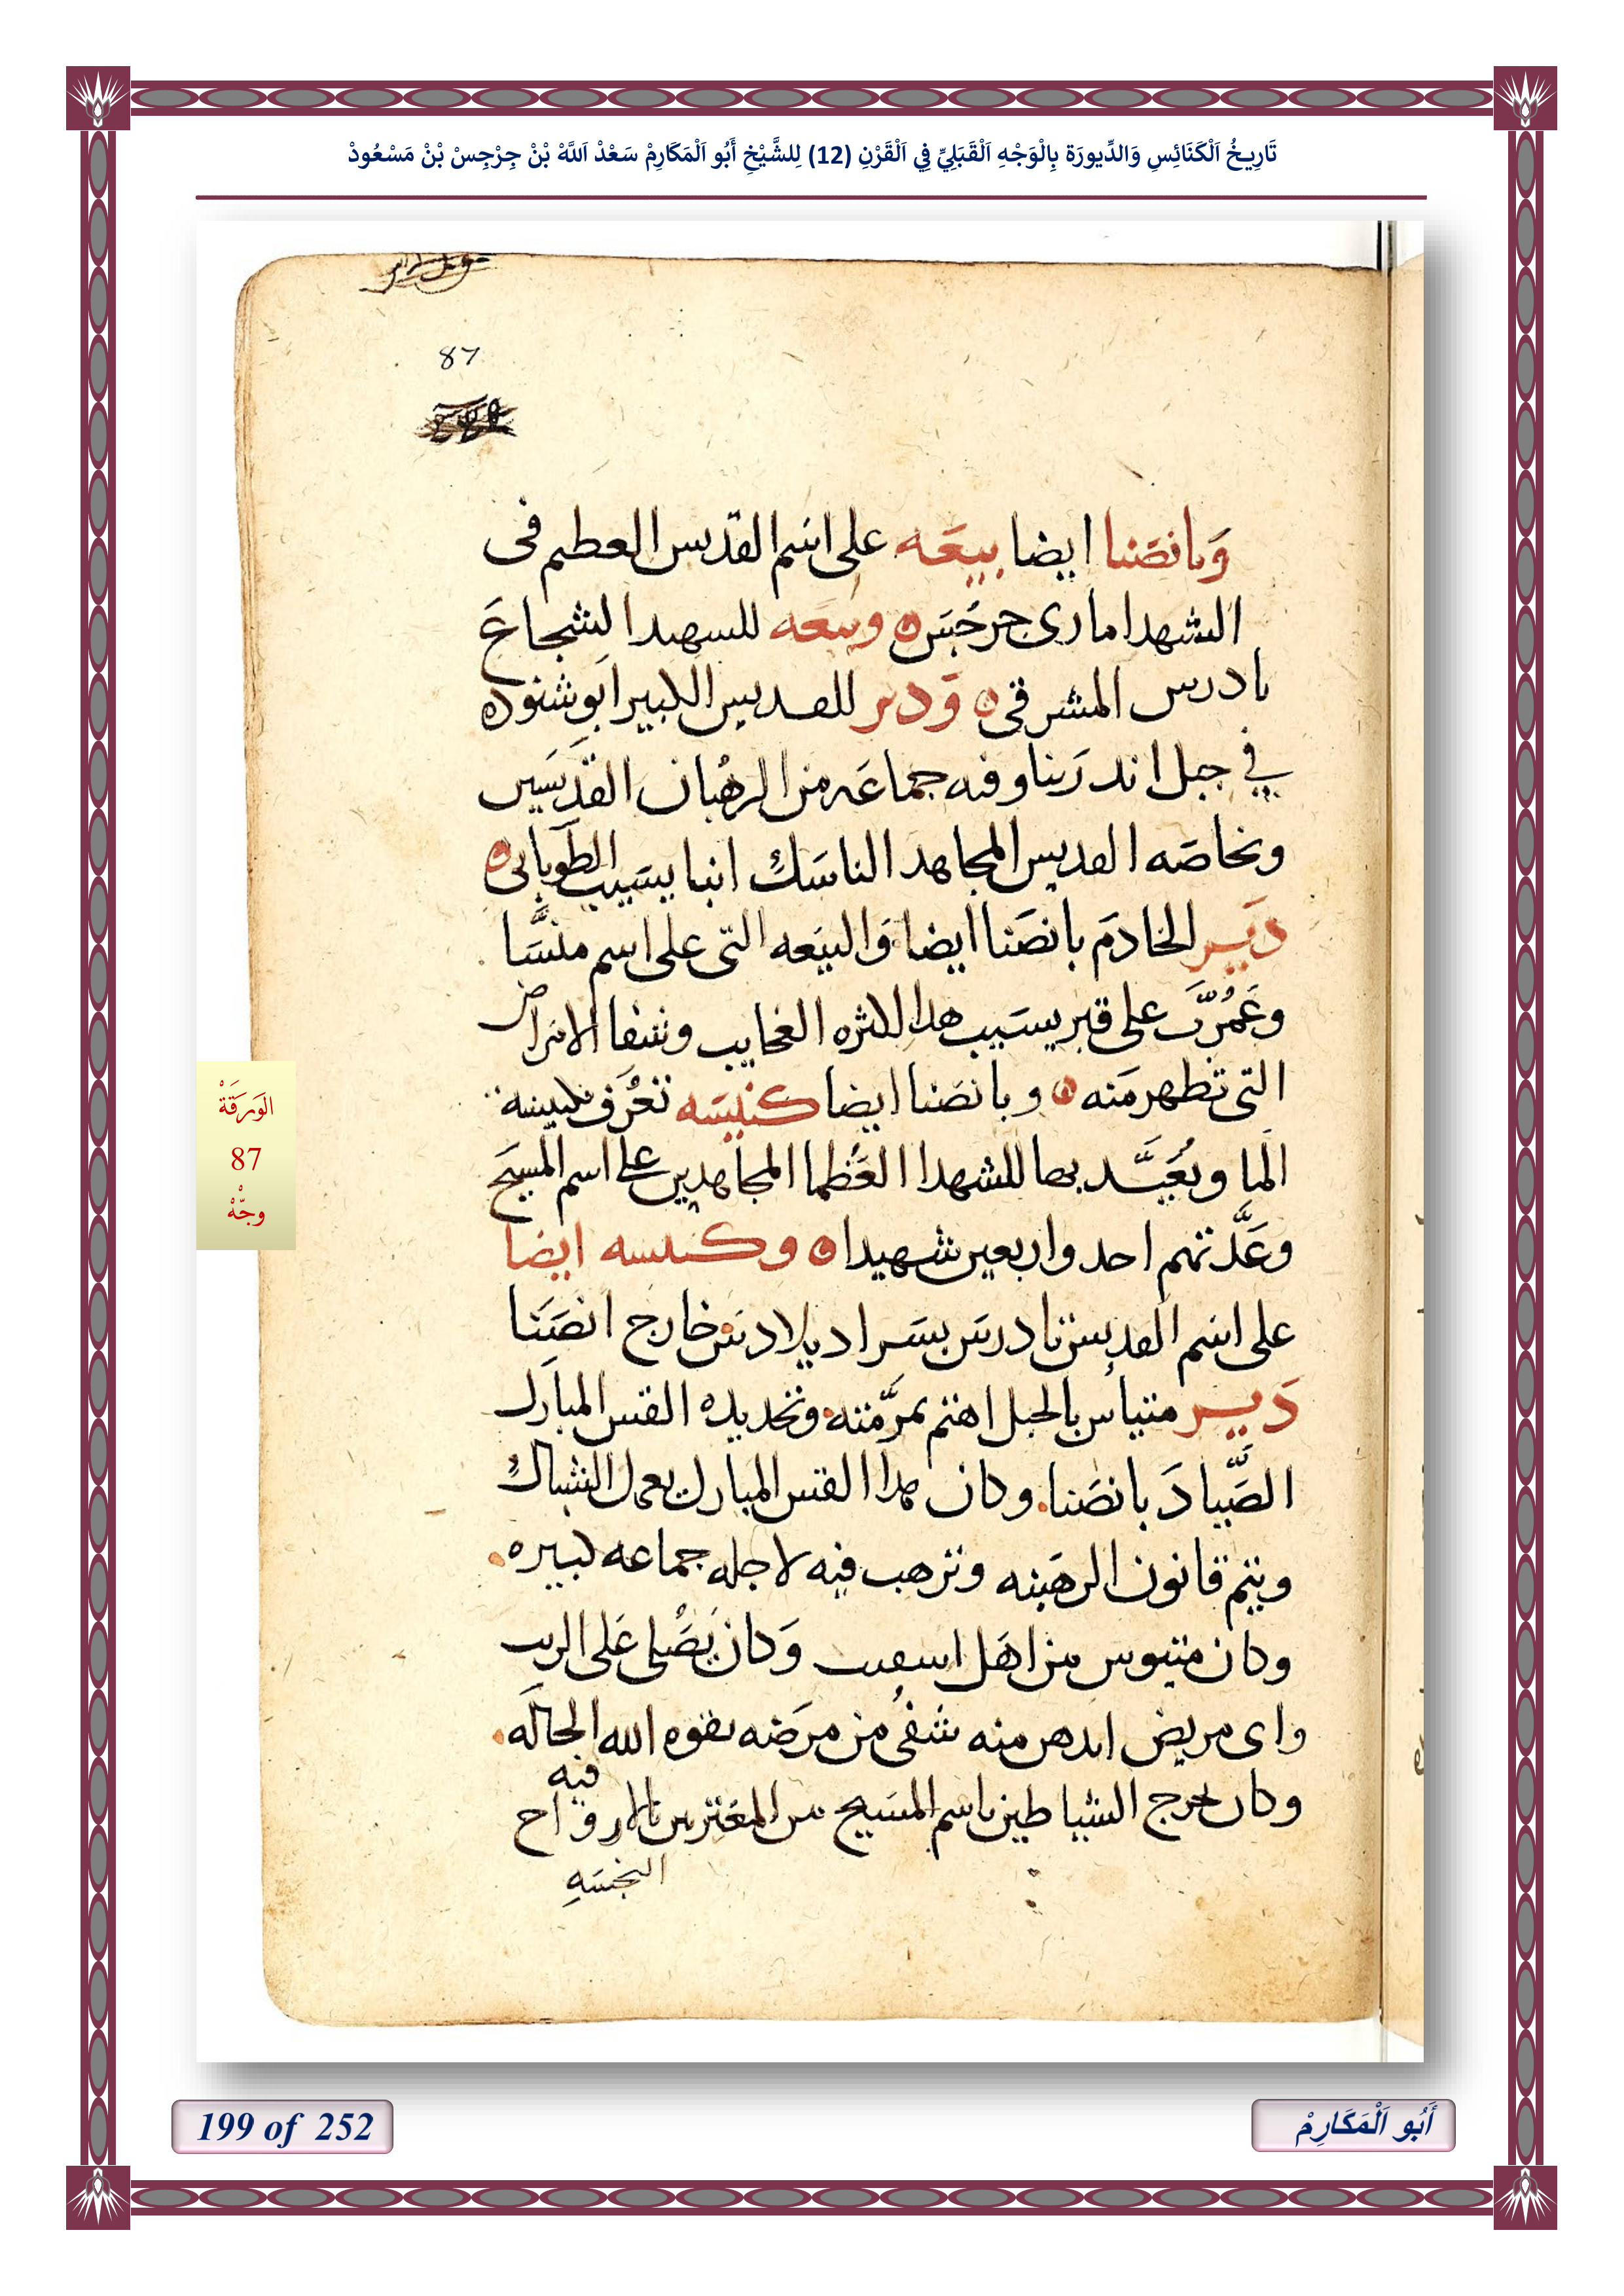 تَارِيخُ اَلْكَنَائِسِ وَالدِّيورَة بِالْوَجْهِ اَلْقَبَلِيِّ فِي اَلْقَرْنِ (12) لِلشَّيْخِ أَبُو اَلْمَكَارِمْ سَعْدْ اَللَّهْ بْنْ جِرْجِسْ بْنْ مَسْعُودْ
87
وَبانصَنا ايضا بيعَه على اسم القدىس العطىم فى
الشهدا مارى جرجس وىىعَه للسهىد الشجاع
تادرس المشرقى وَدىر للقدىس الكبير ابو شنوده
في جبل اندرَيناوفىه جماعَه من الرهُبان القدىسَىىن
وبخاصَه القديس المجاهد الناسَك انبا يسَيب الطوبانى
دَيىر الخادَم بانصَنا ايضا وَالبيَعه التى على اسم منسَّا
وعَمُرّت على قبر يسَيب هدا لكثره العجايب وشفا الامراض
التى تظهر منَه وبانصَنا ايضا كنيسَه تعُرَف بكنيسة
الما ويعُيَّد بها للشهدا العَظما المجاهدين على اسم المسيَح
وعَدَّتهم احد واربعين شهيدا وكنىسه ايضا
على اسَم القديس تادرسَ خارج انصَنَا
دَيىر متياس بالجبل اهتم بمرَّمته وتجديده القس المبارك
الصَّيادَ بانصَنا وكان هدا القس المبارك يعمل الشباك
ويتم قانون الرهَبنه وترهب فيه لاجله جماعه كبيره
وكان متيوس من اهَل اسفىت وَكان يَصُلى عَلى الزيت
واى مريض ادهن منه شفُى من مرَضه بقوه الله الجالَه
فيه
وكان يخرج الشياطين باسم المسَيح من المعَترىىن بالاروَاح
النجسَهِ
الوَرَقَةْ
87
وجّهْ
199 of 252
أَبُو اَلْمَكَارِمْ